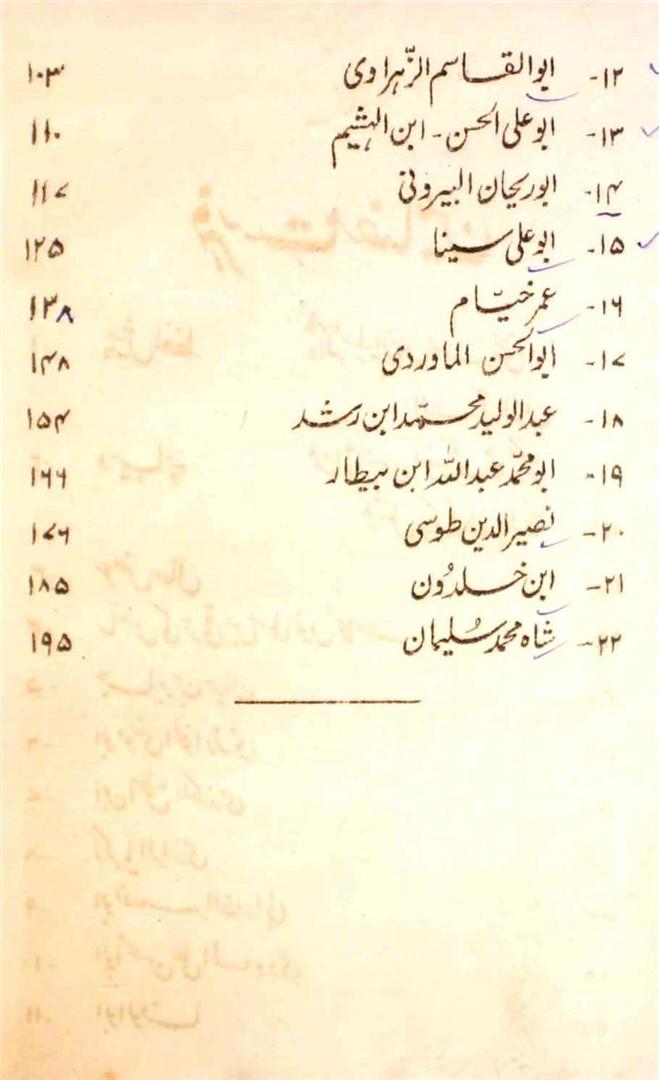 ۱۲- ابوالقاسم الزّہراوی ۱۰۳
۱۳- ابو علی الحسن - ابن الہشیم ۱۱۰
۱۴- ابو ریحان البیرونی ۱۱۷
۱۵- ابو علی سینا ۱۲۵
۱۶- عمر خیّام ۱۳۸
۱۷- ابوالحسن الماوردی ۱۴۸
۱۸- عبدالولید محمّد ابن رشد ۱۵۴
۱۹- ابو محمّد عبداللہ ابن بیطار ۱۶۶
۲۰- نصیر الدین طوسی ۱۷۶
۲۱- ابن خلدُون ۱۸۵
۲۲- شاہ محمد سُلیمان ۱۹۵